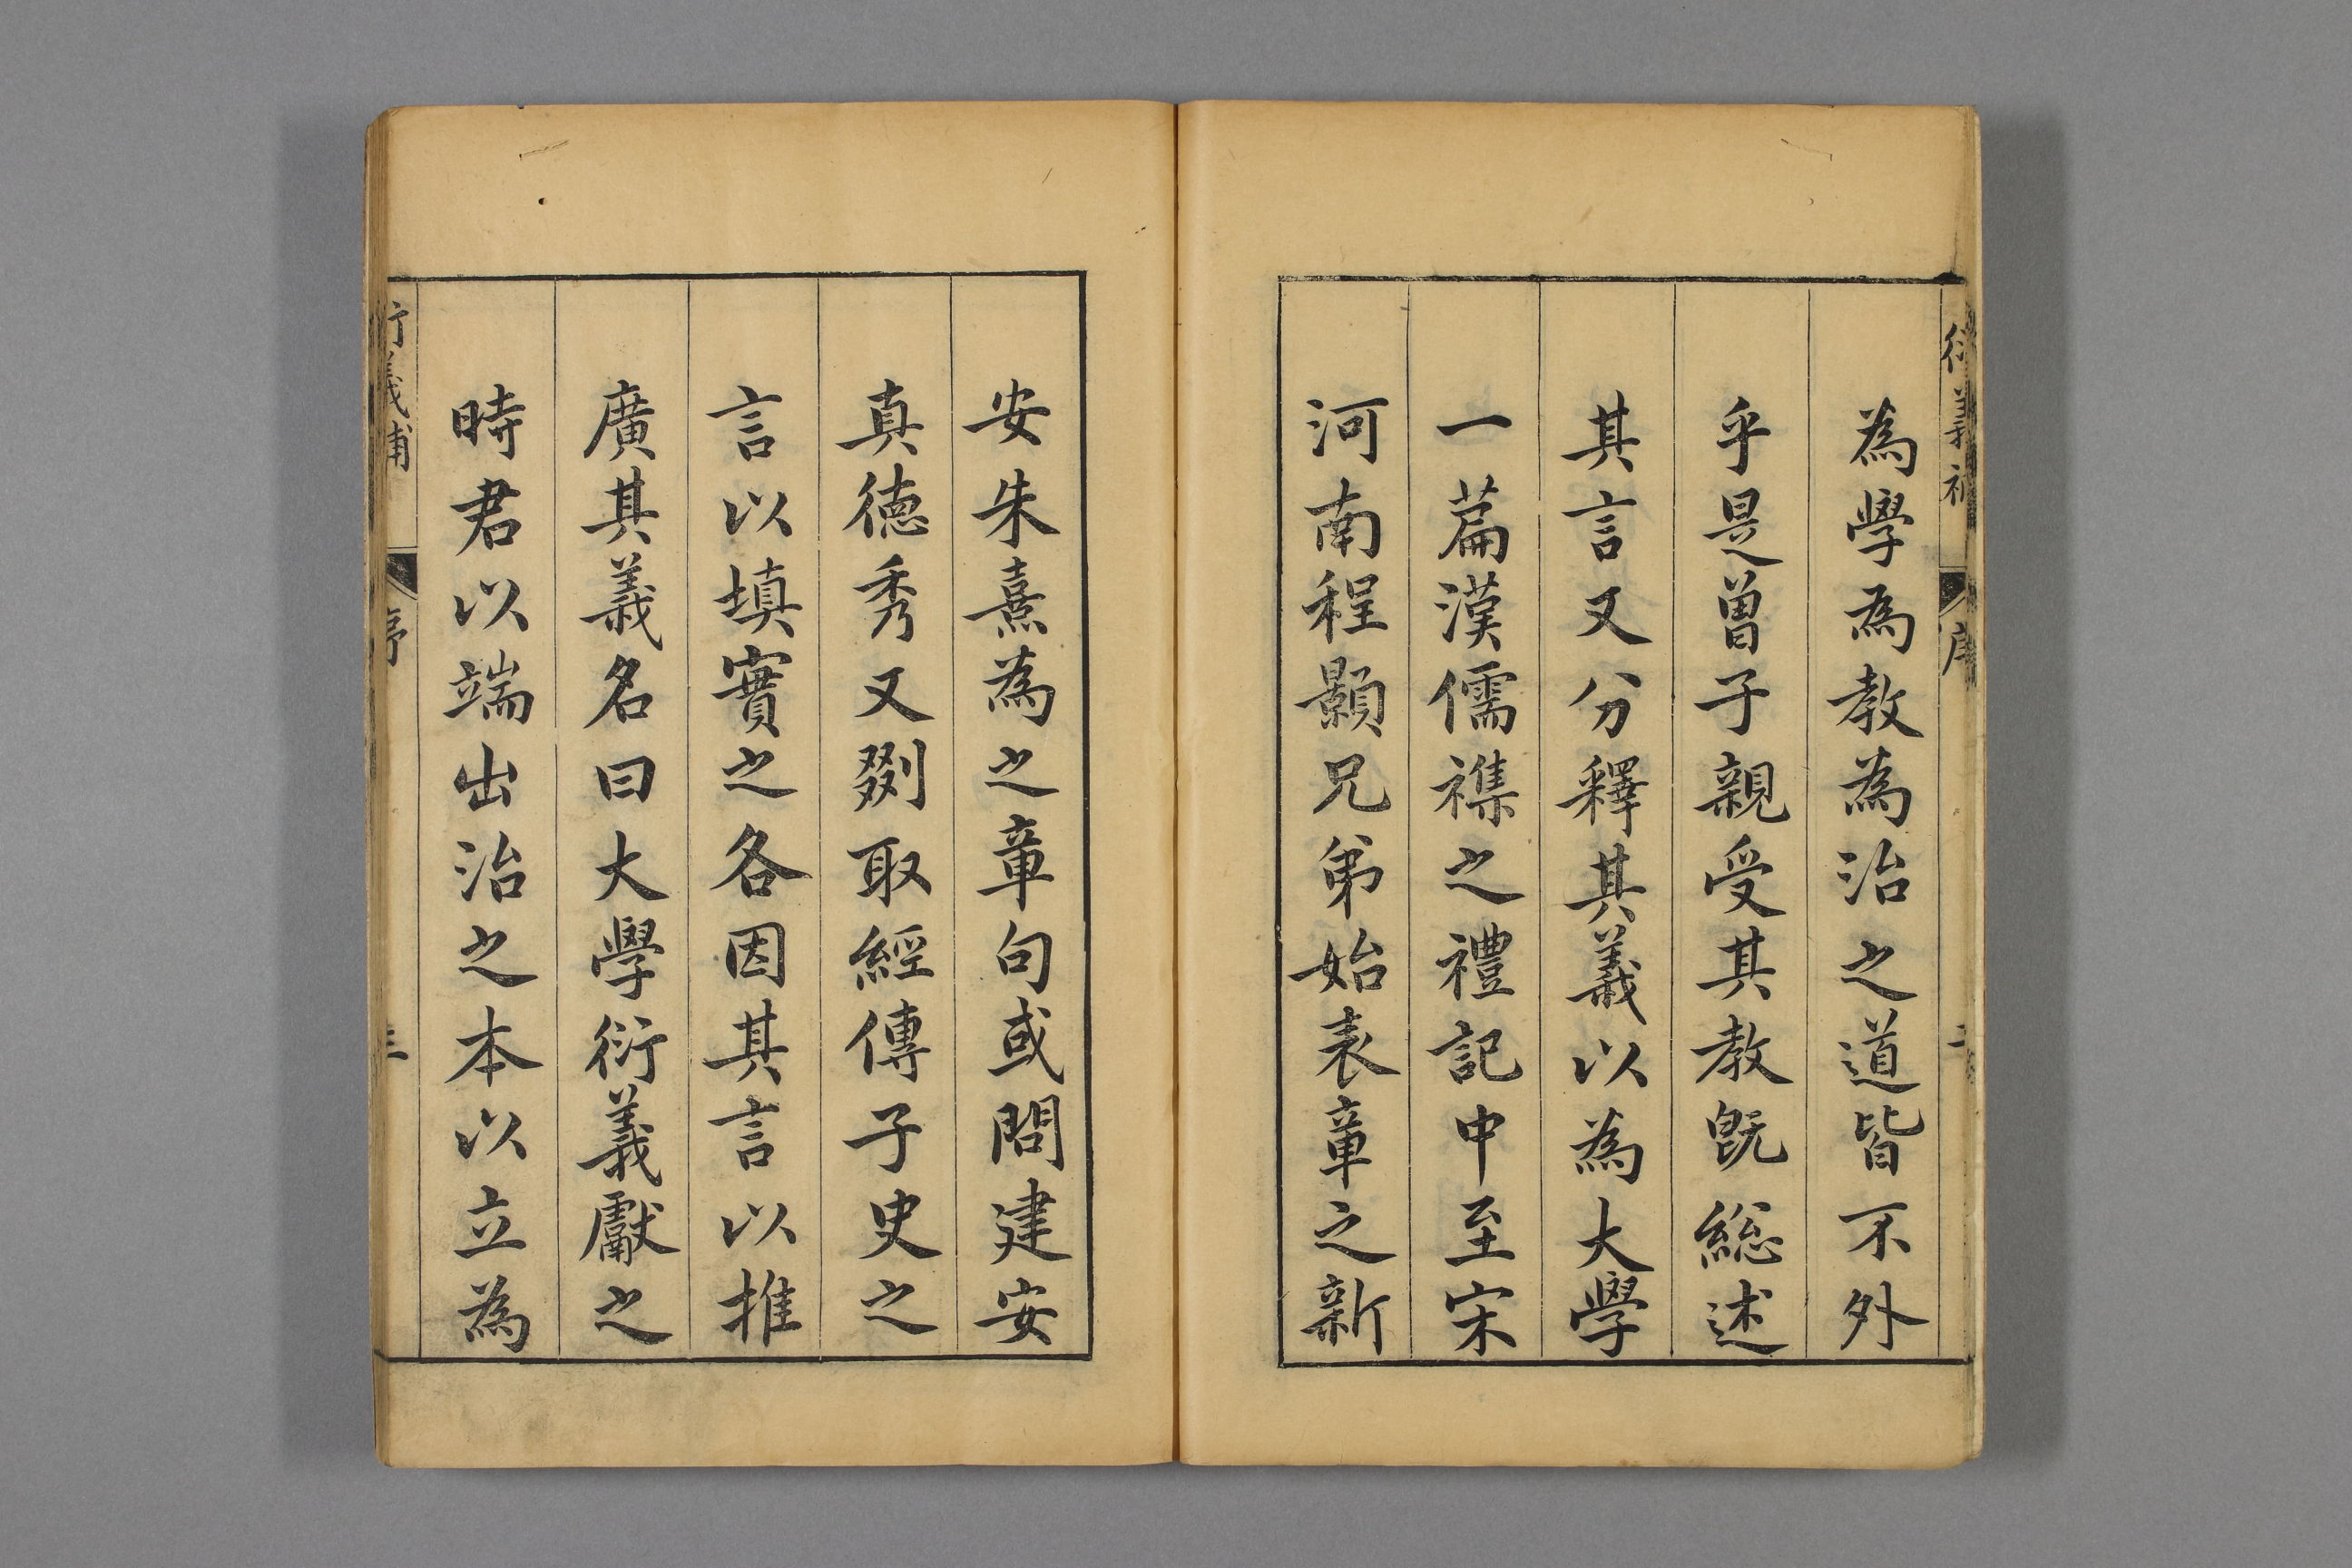 衍義補 序 二
為學為教為治之道皆不外
乎是曾子親受其教旣総述
其言又分釋其義以為大學
一篇漢儒襍之禮記中至宋
河南程顥兄弟始表章之新
安朱熹為之章句或問建安
真徳秀又剟取經傳子史之
言以填實之各因其言以推
廣其義名曰大學衍義獻之
時君以端出治之本以立為
衍義補 序 三